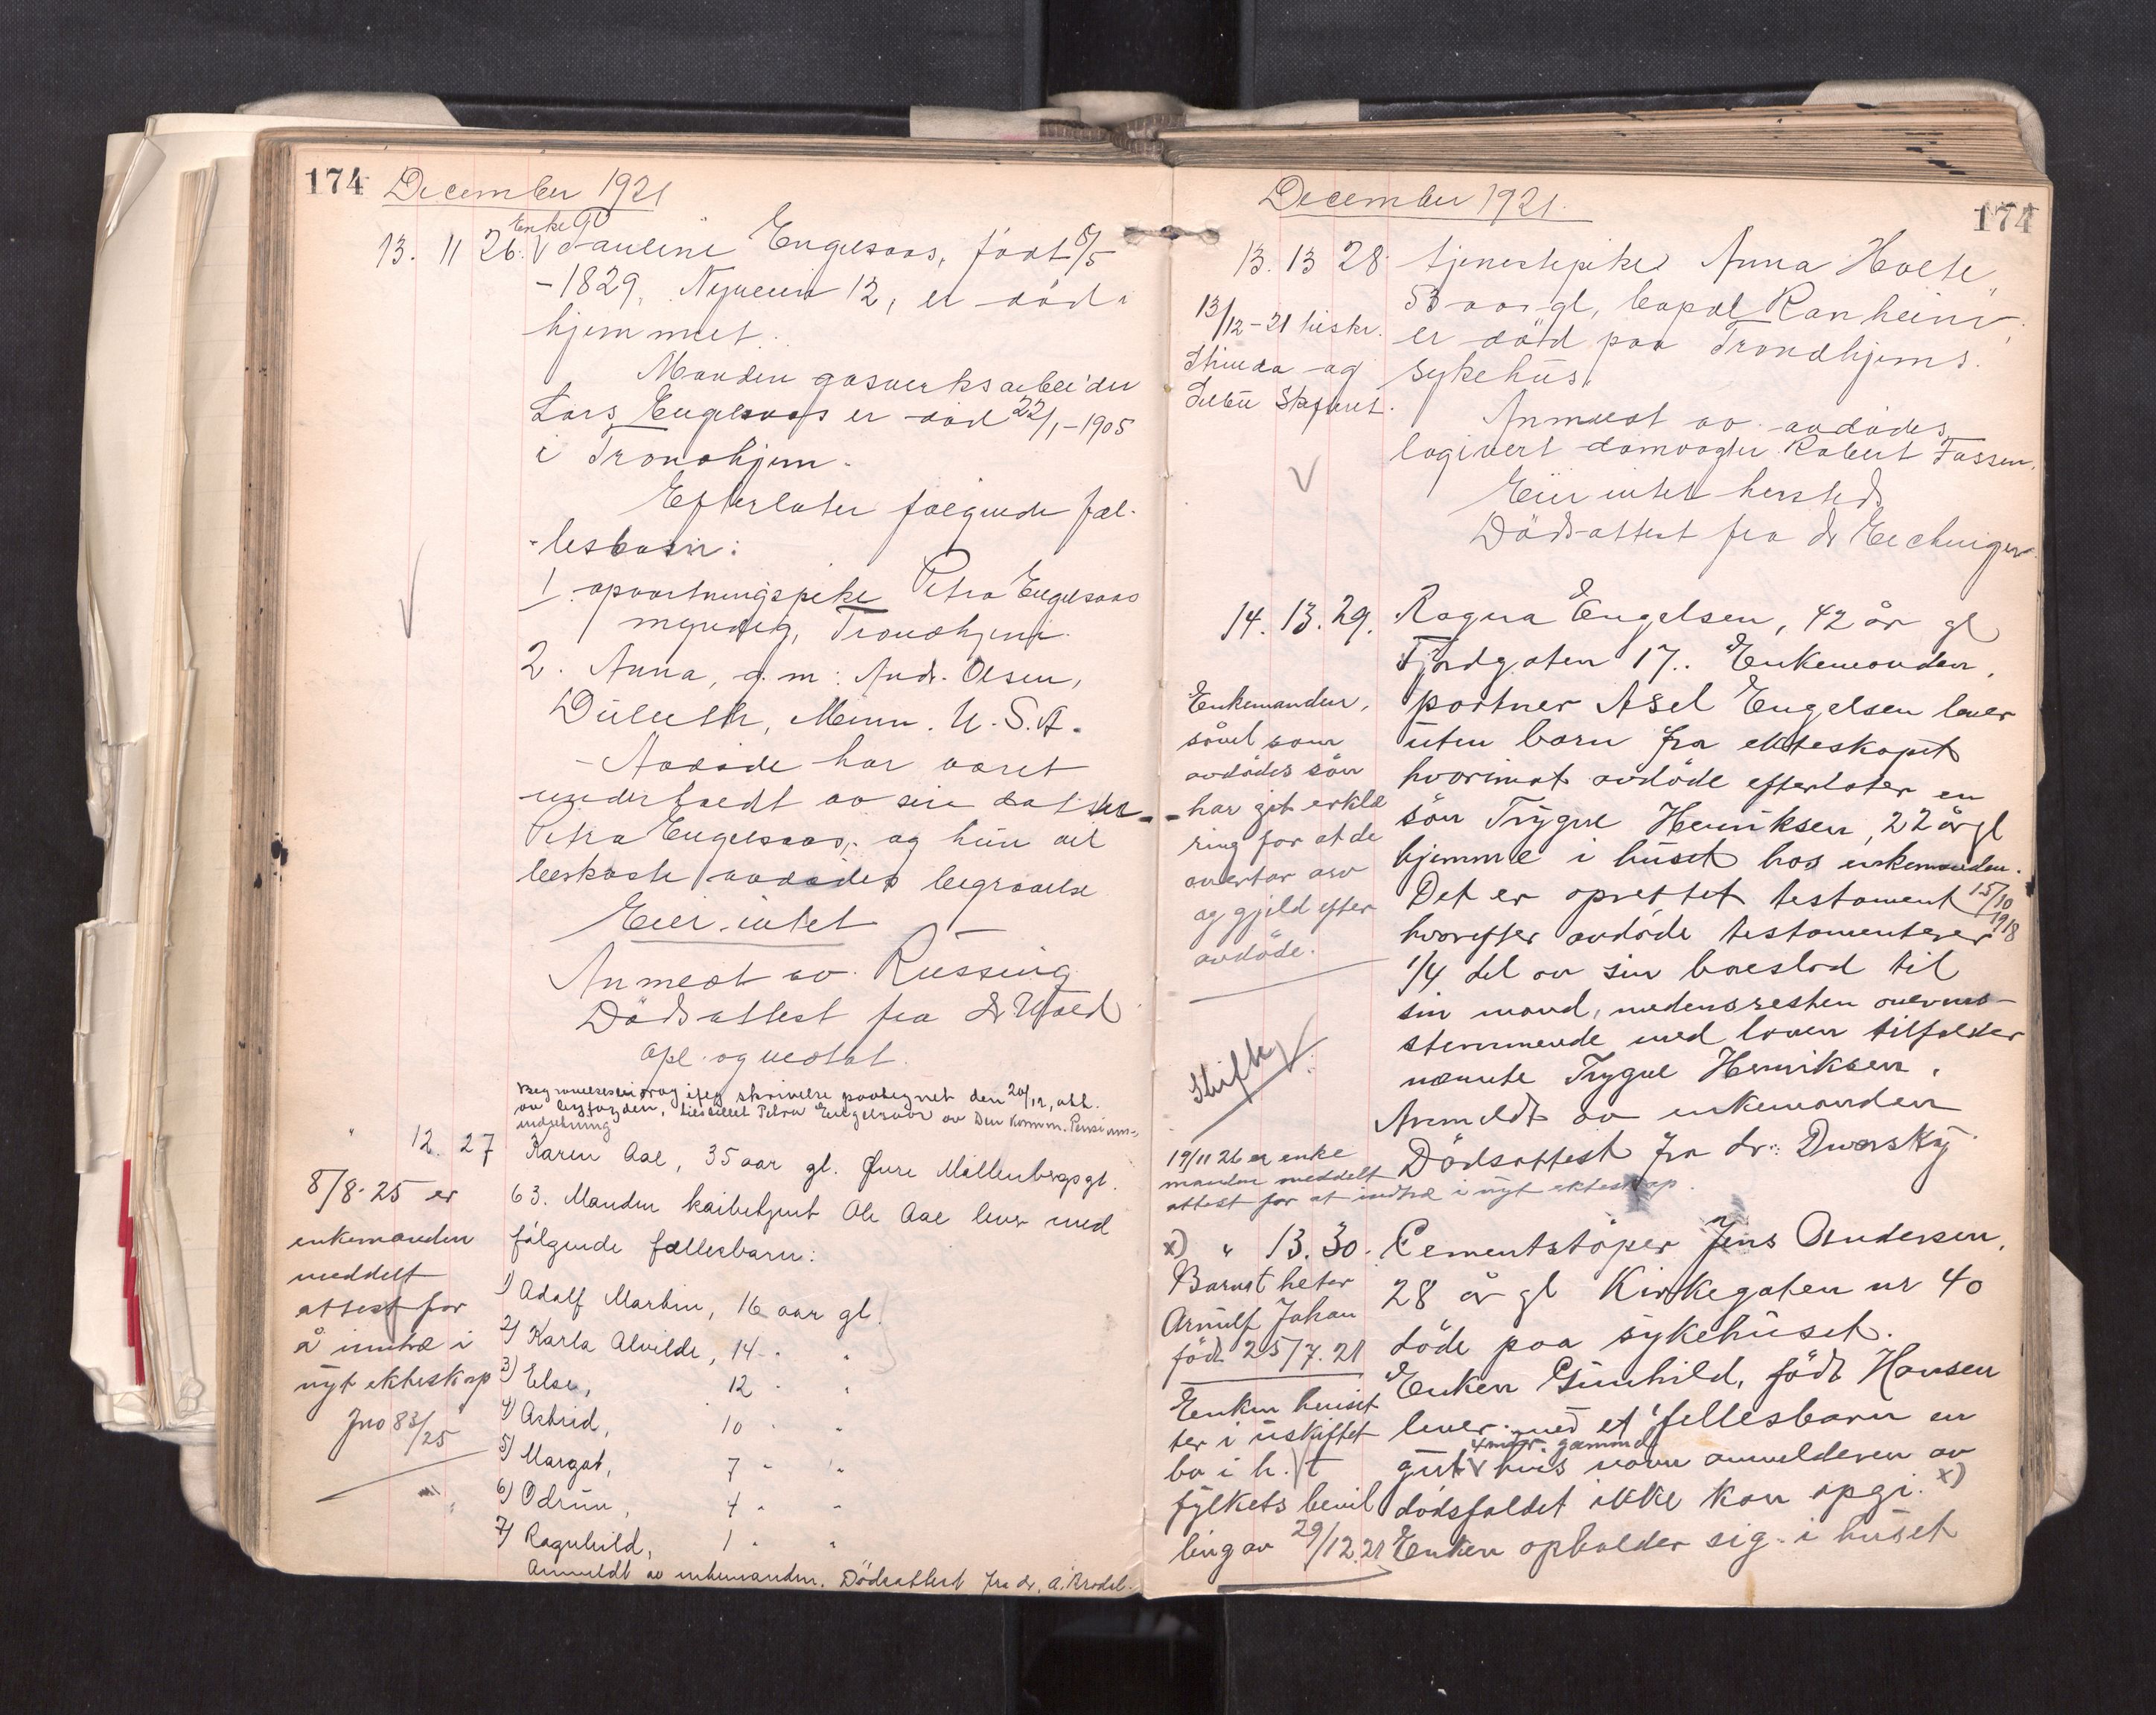 174 December 1921
13. 11 26. Enke Pauline Engelsaas, født 8/5
- 1829, Nyveien 12, er død i
hjemmet.
Manden gasverksarbeider
Lars Engelsaas er død 22/1-1905
i Trondhjem.
Efterlater følgende fæl-
-lesbarn:
1. opvartningspike Petra Engelsaas
myndig, Trondhjem.
2. Anna, g. m. Andr. Olsen,
Duluth, Minn. U.S.A.
Avdøde har været
underholdt av sin datter
Petra Engelsaas, og hun vil
bekoste avdødes begravelse
Eier intet
Anmeldt av Russing
Dødsattest fra dr Uføed
opl. og vedtat.
Begravelsesbidrag ifølg skrivelse paategnet den 20/12, att.
av byfogden, tilstillet Petra Engelsaas av Den Komm. Pensions-
indretning
" 12. 27 Karen Aae, 35 aar gl. Øvre Møllenbergsgt.
63. Manden Ole Aae lever med
følgende fællesbarn:
1) Adolf Martin, 16 aar gl.
2) Karla Alvilde, 14 " "
3) Else, 12 " "
4) Astrid, 10 " "
5) Margot, 7 " "
6) Odrun, 4 " "
7) Ragnhild, 1 " "
Anmeldt av enkemanden. Dødsattest fra dr. A. Brodal.
8/8-25 er
enkemanden
meddelt
attest for
å inntræ i
nyt ekteskap
Jno 83/25
December 1921. 174
13. 13 28 tjenestepike Anna Holte
53 aar gl, bopæl Ranheim,
er død paa Trondhjems
sykehus.
Anmeldt av avdødes
logivert damvogter Robert Fossen.
Eier intet hersteds
Dødsattest fra dr Eechinger
13/12-21 tilskr.
Strinda og
Selbu Skifteret.
14. 13. 29. Ragna Engelsen, 42 år gl
Fjordgaten 17. Enkemanden,
portner Axel Engelsen lever
uten barn fra ekteskapet
hvorimot avdøde efterlater en
søn Trygve Henriksen, 22 år gl
hjemme i huset hos enkemanden.
Det er oprettet testament 15/10 1918
hvorefter avdøde testamenterer
1/4 del av sin boeslod til
sin mand, medens resten overens-
stemmende med loven tilfalder
nævnte Trygve Henriksen.
Anmeldt av enkemanden
Dødsattest fra dr. Dworsky
Enkemanden,
såvel som
avdødes søn
har git erklæ
ring for at de
overtar arv
og gjeld efter
avdøde.
Skifte
19/11 26 er enke
manden meddelt
attest for at indtræ i nyt ekteskap.
x) " 13. 30. Cementstøper Jens Andersen,
28 år gl Kirkegaten nr 40
døde paa sykehuset.
Enken Gunhild, født Hansen
lever med et fellesbarn en
gut 4 mdr. gammel hvis navn anmelderen av
dødsfaldet ikke kan opgi. x)
Enken opholder sig i huset
Barnet heter
Arnulf Johan
født 25/7. 21
Enken henset
ter i uskiftet
bo i h. t
fylkets bevil
ling av 29/12.21